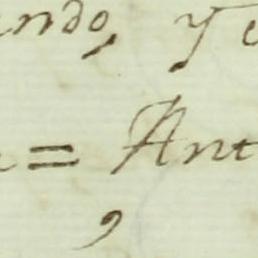 ndo, y e
= Ant